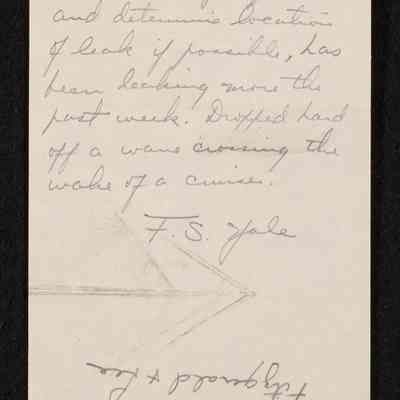 and determine location
of leak if possible, has
been leaking more the
past week. Dropped hard
off a wave crossing the
wake of a cruiser.
F. S. Yale
Fitzgerald & Lee